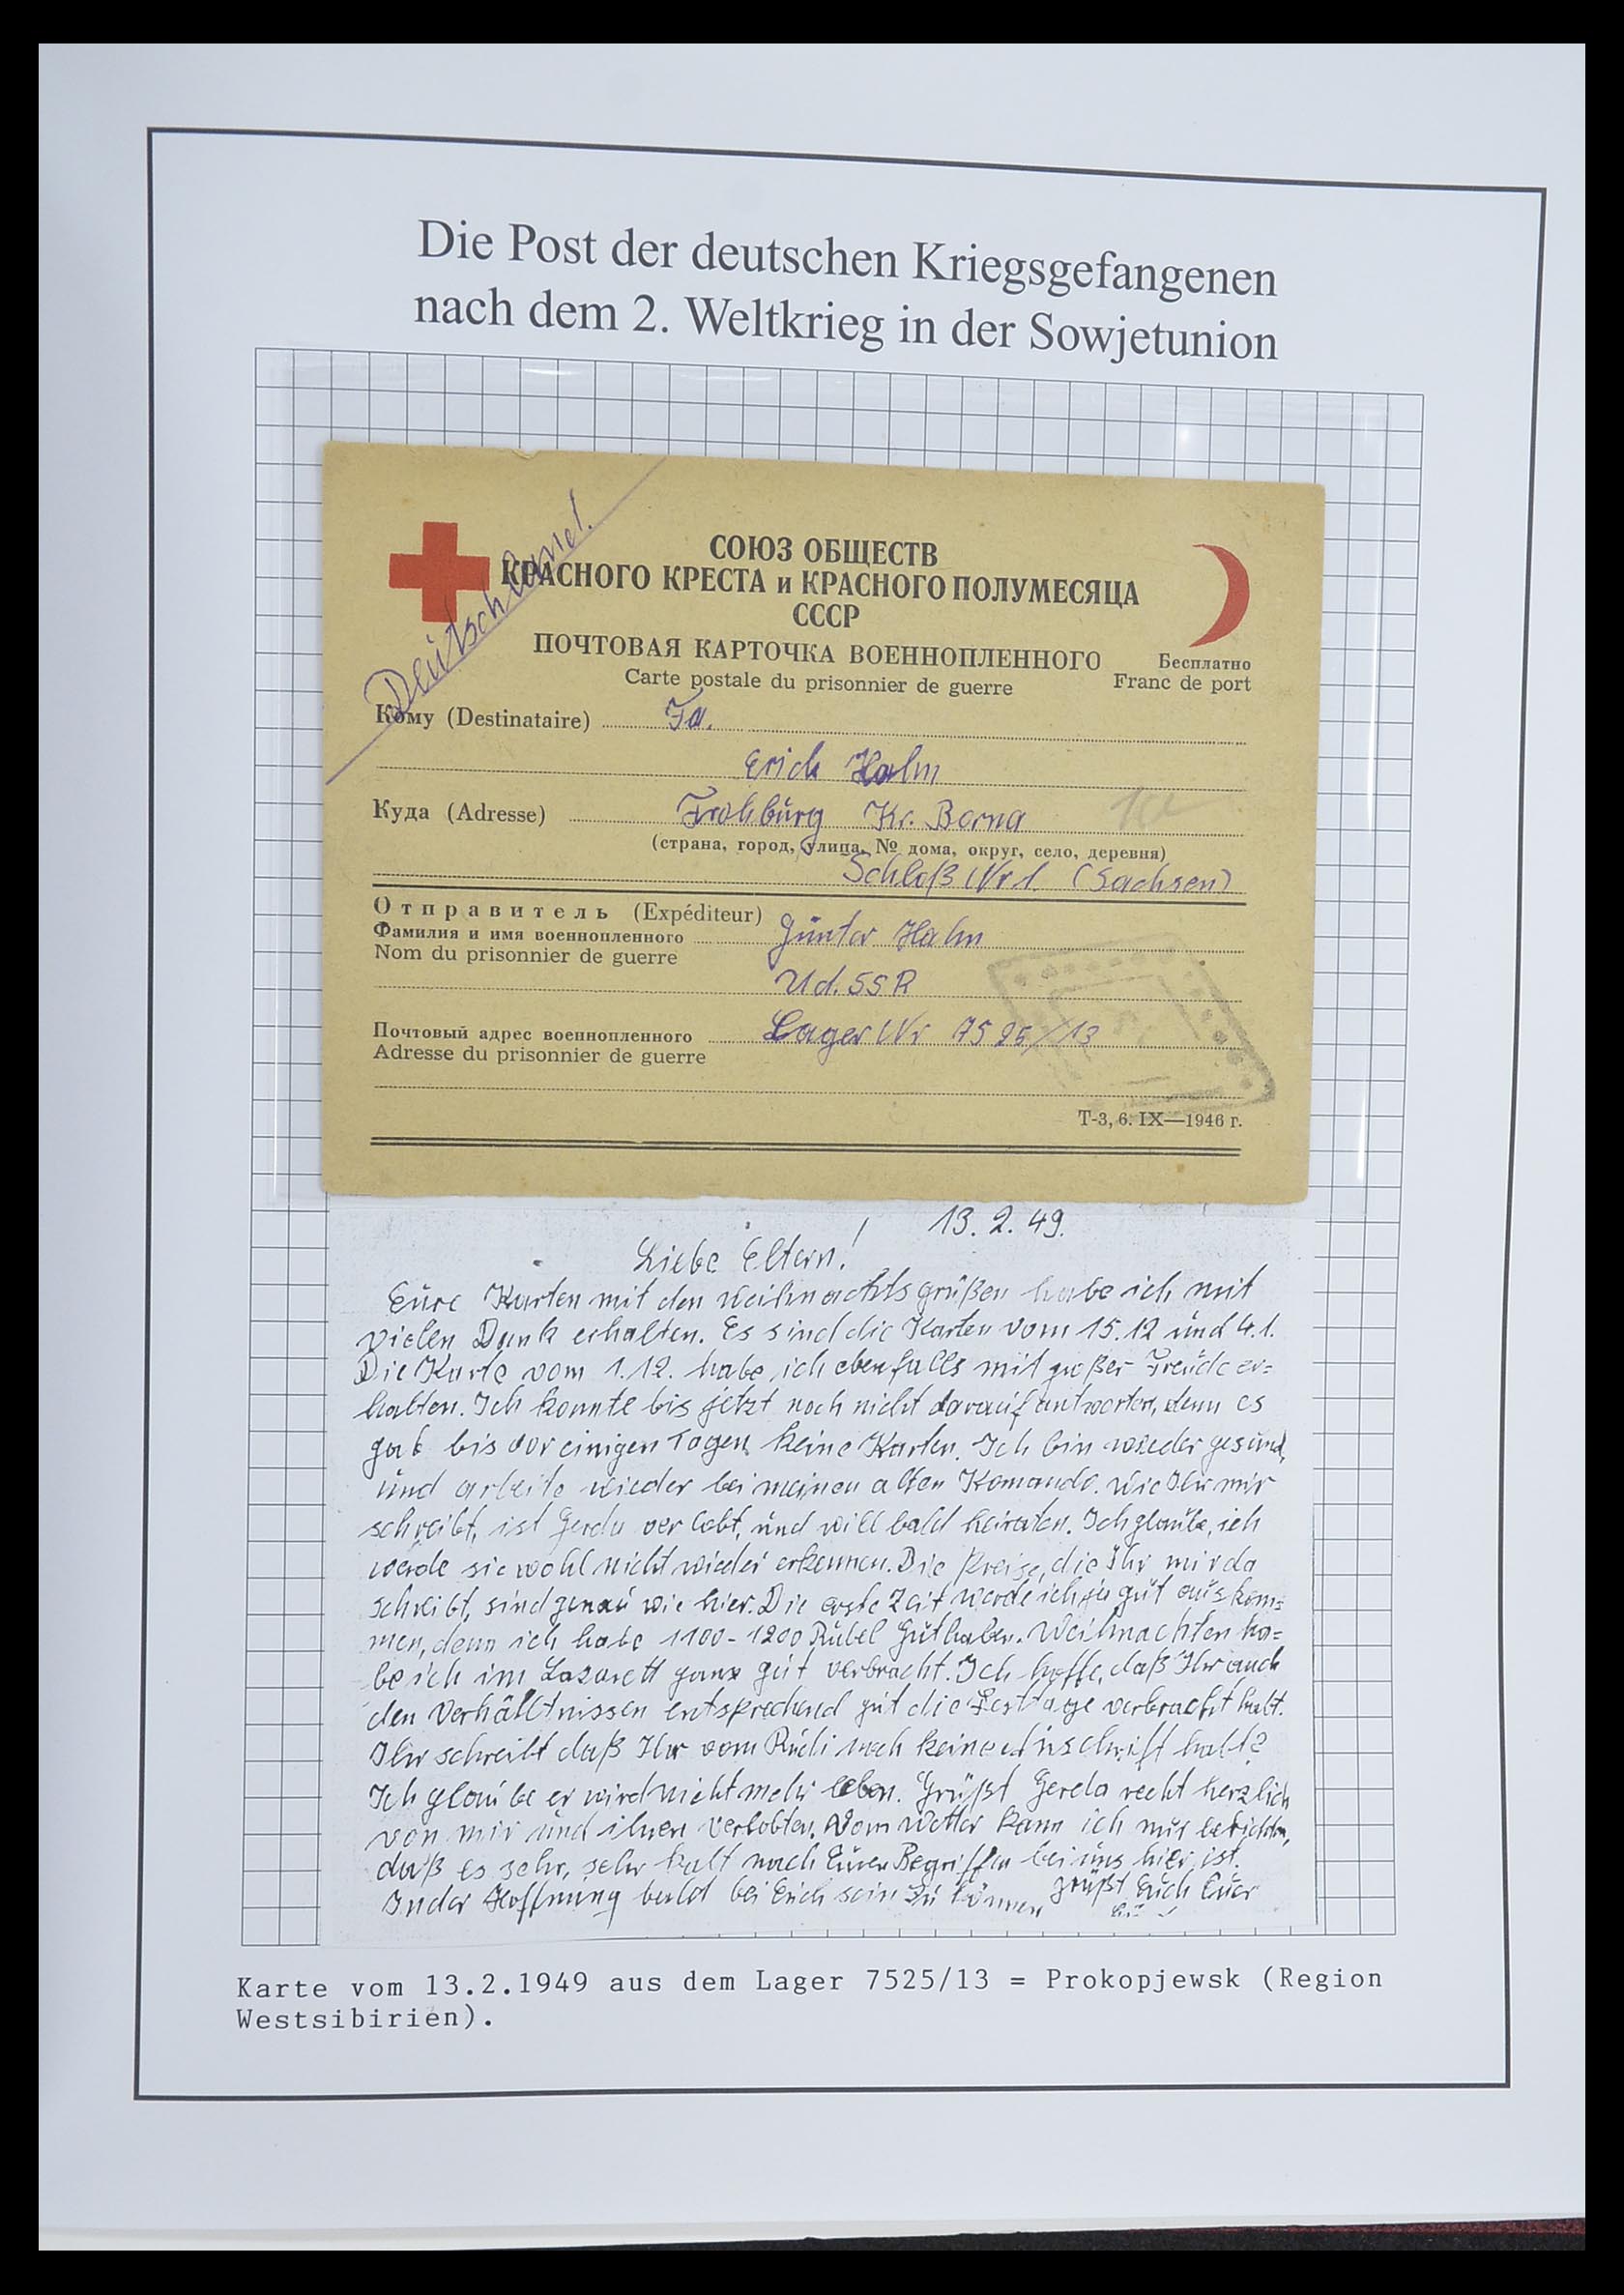 Die Post der deutschen Kriegsgefangenen
nach dem 2. Weltkrieg in der Sowjetunion
Deutschland.
СОЮЗ ОБЩЕСТВ
КРАСНОГО КРЕСТА и КРАСНОГО ПОЛУМЕСЯЦА
СССР
ПОЧТОВАЯ КАРТОЧКА ВОЕННОПЛЕННОГО
Бесплатно
Carte postale du prisonnier de guerre
Franc de port
Кому (Destinataire) Fa.
Erich Hahn
Куда (Adresse) Frohburg Kr. Borna
(страна, город, улица, № дома, округ, село, деревня)
Schloß Nr 1 (Sachsen)
Отправитель (Expéditeur)
Фамилия и имя военнопленного Günter Hahn
Nom du prisonnier de guerre
Ud. SSR
Почтовый адрес военнопленного Lager Nr 7525/13
Adresse du prisonnier de guerre
Т-3, 6. IX—1946 г.
13. 2. 49.
Liebe Eltern!
Eure Karten mit den Weihnachtsgrüßen habe ich mit
vielen Dank erhalten. Es sind die Karten vom 15.12 und 4.1.
Die Karte vom 1.12. habe ich ebenfalls mit großer Freude er=
halten. Ich konnte bis jetzt noch nicht darauf antworten, denn es
gab bis vor einigen Tagen keine Karten. Ich bin wieder gesund,
und arbeite wieder bei meinen alten Komando. Wie Ihr mir
schreibt, ist Gerda verlobt, und will bald heiraten. Ich glaube, ich
werde sie wohl nicht wieder erkennen. Die Preise, die Ihr mir da
schreibt, sind genau wie hier. Die erste Zeit werde ich ja gut auskom=
men, denn ich habe 1100-1200 Rubel Guthaben. Weihnachten ha=
be ich im Lazarett ganz gut verbracht. Ich hoffe, daß Ihr auch
den Verhältnissen entsprechend gut die Festtage verbracht habt.
Ihr schreibt daß Ihr vom Rudi noch keine Anschrift habt?
Ich glaube er wird nicht mehr leben. Grüßt Gerda recht herzlich
von mir und ihren Verlobten. Vom Wetter kann ich nur berichten,
daß es sehr, sehr kalt nach Euren Begriffen bei uns hier ist.
In der Hoffnung bald bei Euch sein zu können grüßt Euch Euer
Karte vom 13.2.1949 aus dem Lager 7525/13 = Prokopjewsk (Region
Westsibirien).